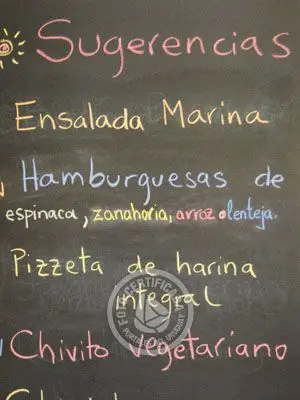 Sugerencias
Ensalada Marina
Hamburguesas de
espinaca, zanahoria, arroz o lenteja.
Pizzeta de harina
integral
Chivito vegetariano